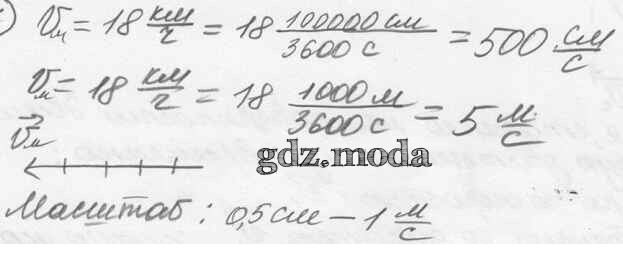 ) Vм = 18 км/ч = 18 100000 см/3600 с = 500 см/с
Vм = 18 км/ч = 18 1000 м/3600 с = 5 м/с
V⃗м
gdz.moda
Масштаб: 0,5 см – 1 м/с